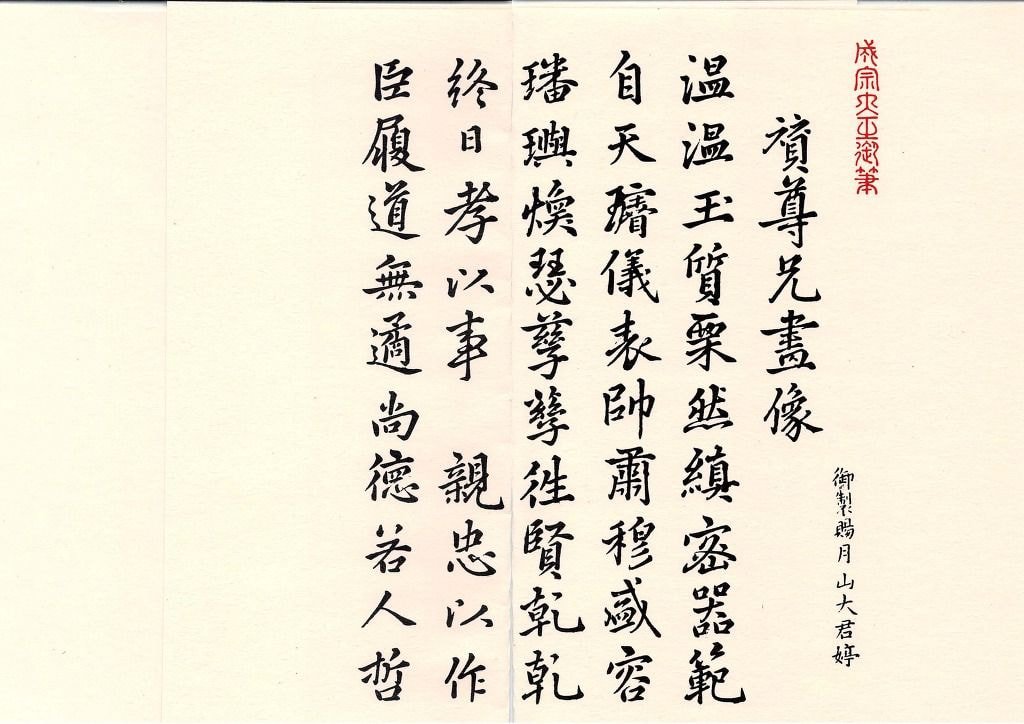 成宗大王御筆
御製賜月山大君婷
賛尊兄畫像
温温玉質栗然縝密器範
自天璿儀表帥肅穆盛容
璠璵煥瑟孳孳徃賢乾乾
終日孝以事　親忠以作
臣履道無遹尚德若人哲